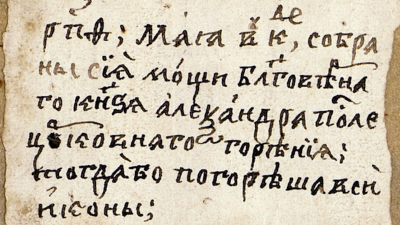 рп҃ѳ; Маїа в҃ к҃, де собра
ны сїѧ̀ мо́щи бл҃говѣ́рна
го кн҃ѕѧ алеѯа́ндра по́сле
цр҃ковнаго горѣ́нїѧ;
тогда̀ бо погорѣ́ша всѝ
и҆ко́ны;